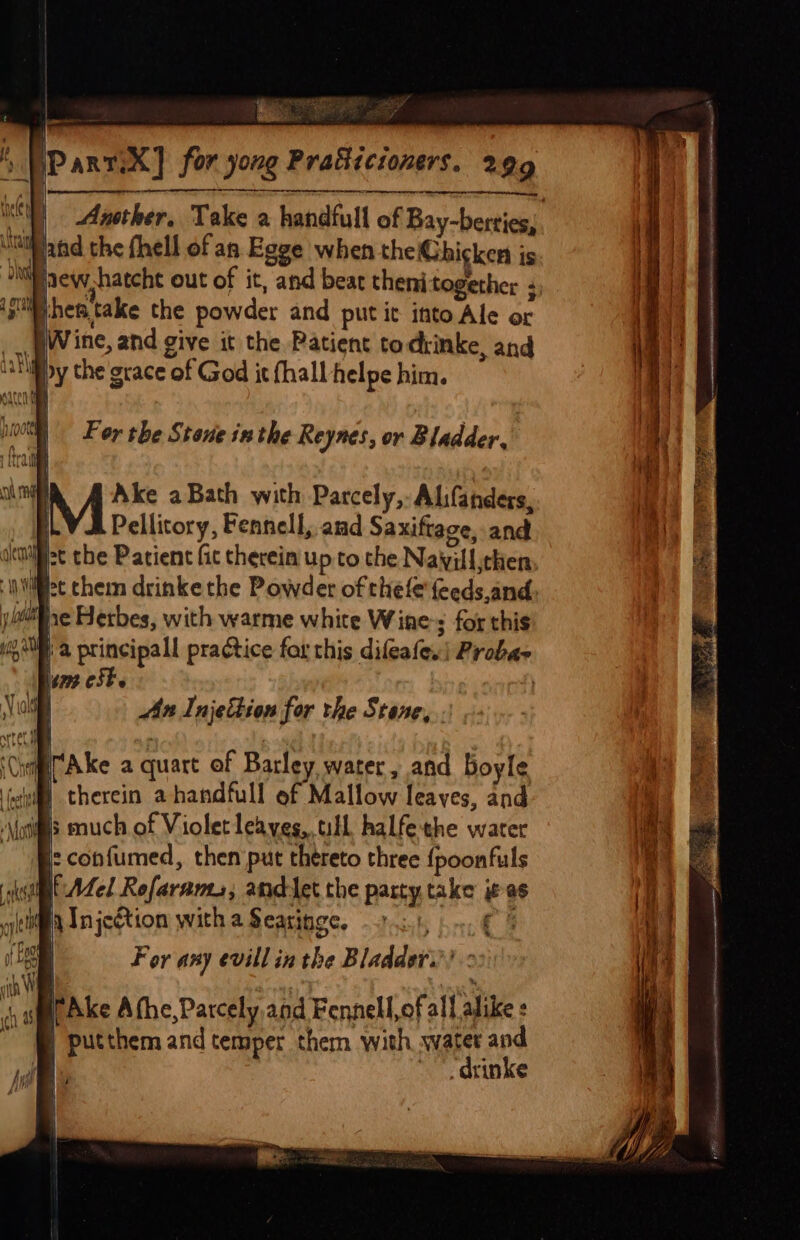 Part.X] for yong Practicioners. 299
Another. Take a handfull of Bay-berries,
and the ſhell of an Egge when the Chicken is
new hatcht out of it, and beat them together;
then take the powder and put it into Ale or
Wine, and give it the Patient to drinke, and
by the grace of God it ſhall helpe him.
For the Stone in the Reynes, or Bladder.
MAke a Bath with Parcely, Aliſanders,
Pellitory, Fennell, and Saxifrage, and
let the Patient ſit therein up to the Navill, then
let them drinke the Powder of theſe ſeeds, and
the Herbes, with warme white Wine; for this
a principall practice for this diſeaſe. Proba-
tum eſt.
An Injection for the Stone,
TAke a quart of Barley water, and boyle
therein a handfull of Mallow leaves, and
as much of Violet leaves, till halfe the water
be conſumed, then put thereto three ſpoonfuls
of Mel Roſarum, and let the party take it as
a Injection with a Searinge.
For any evill in the Bladder.
TAke Aſhe, Parcely and Fennell, of all alike:
put them and temper them with water and
drinke